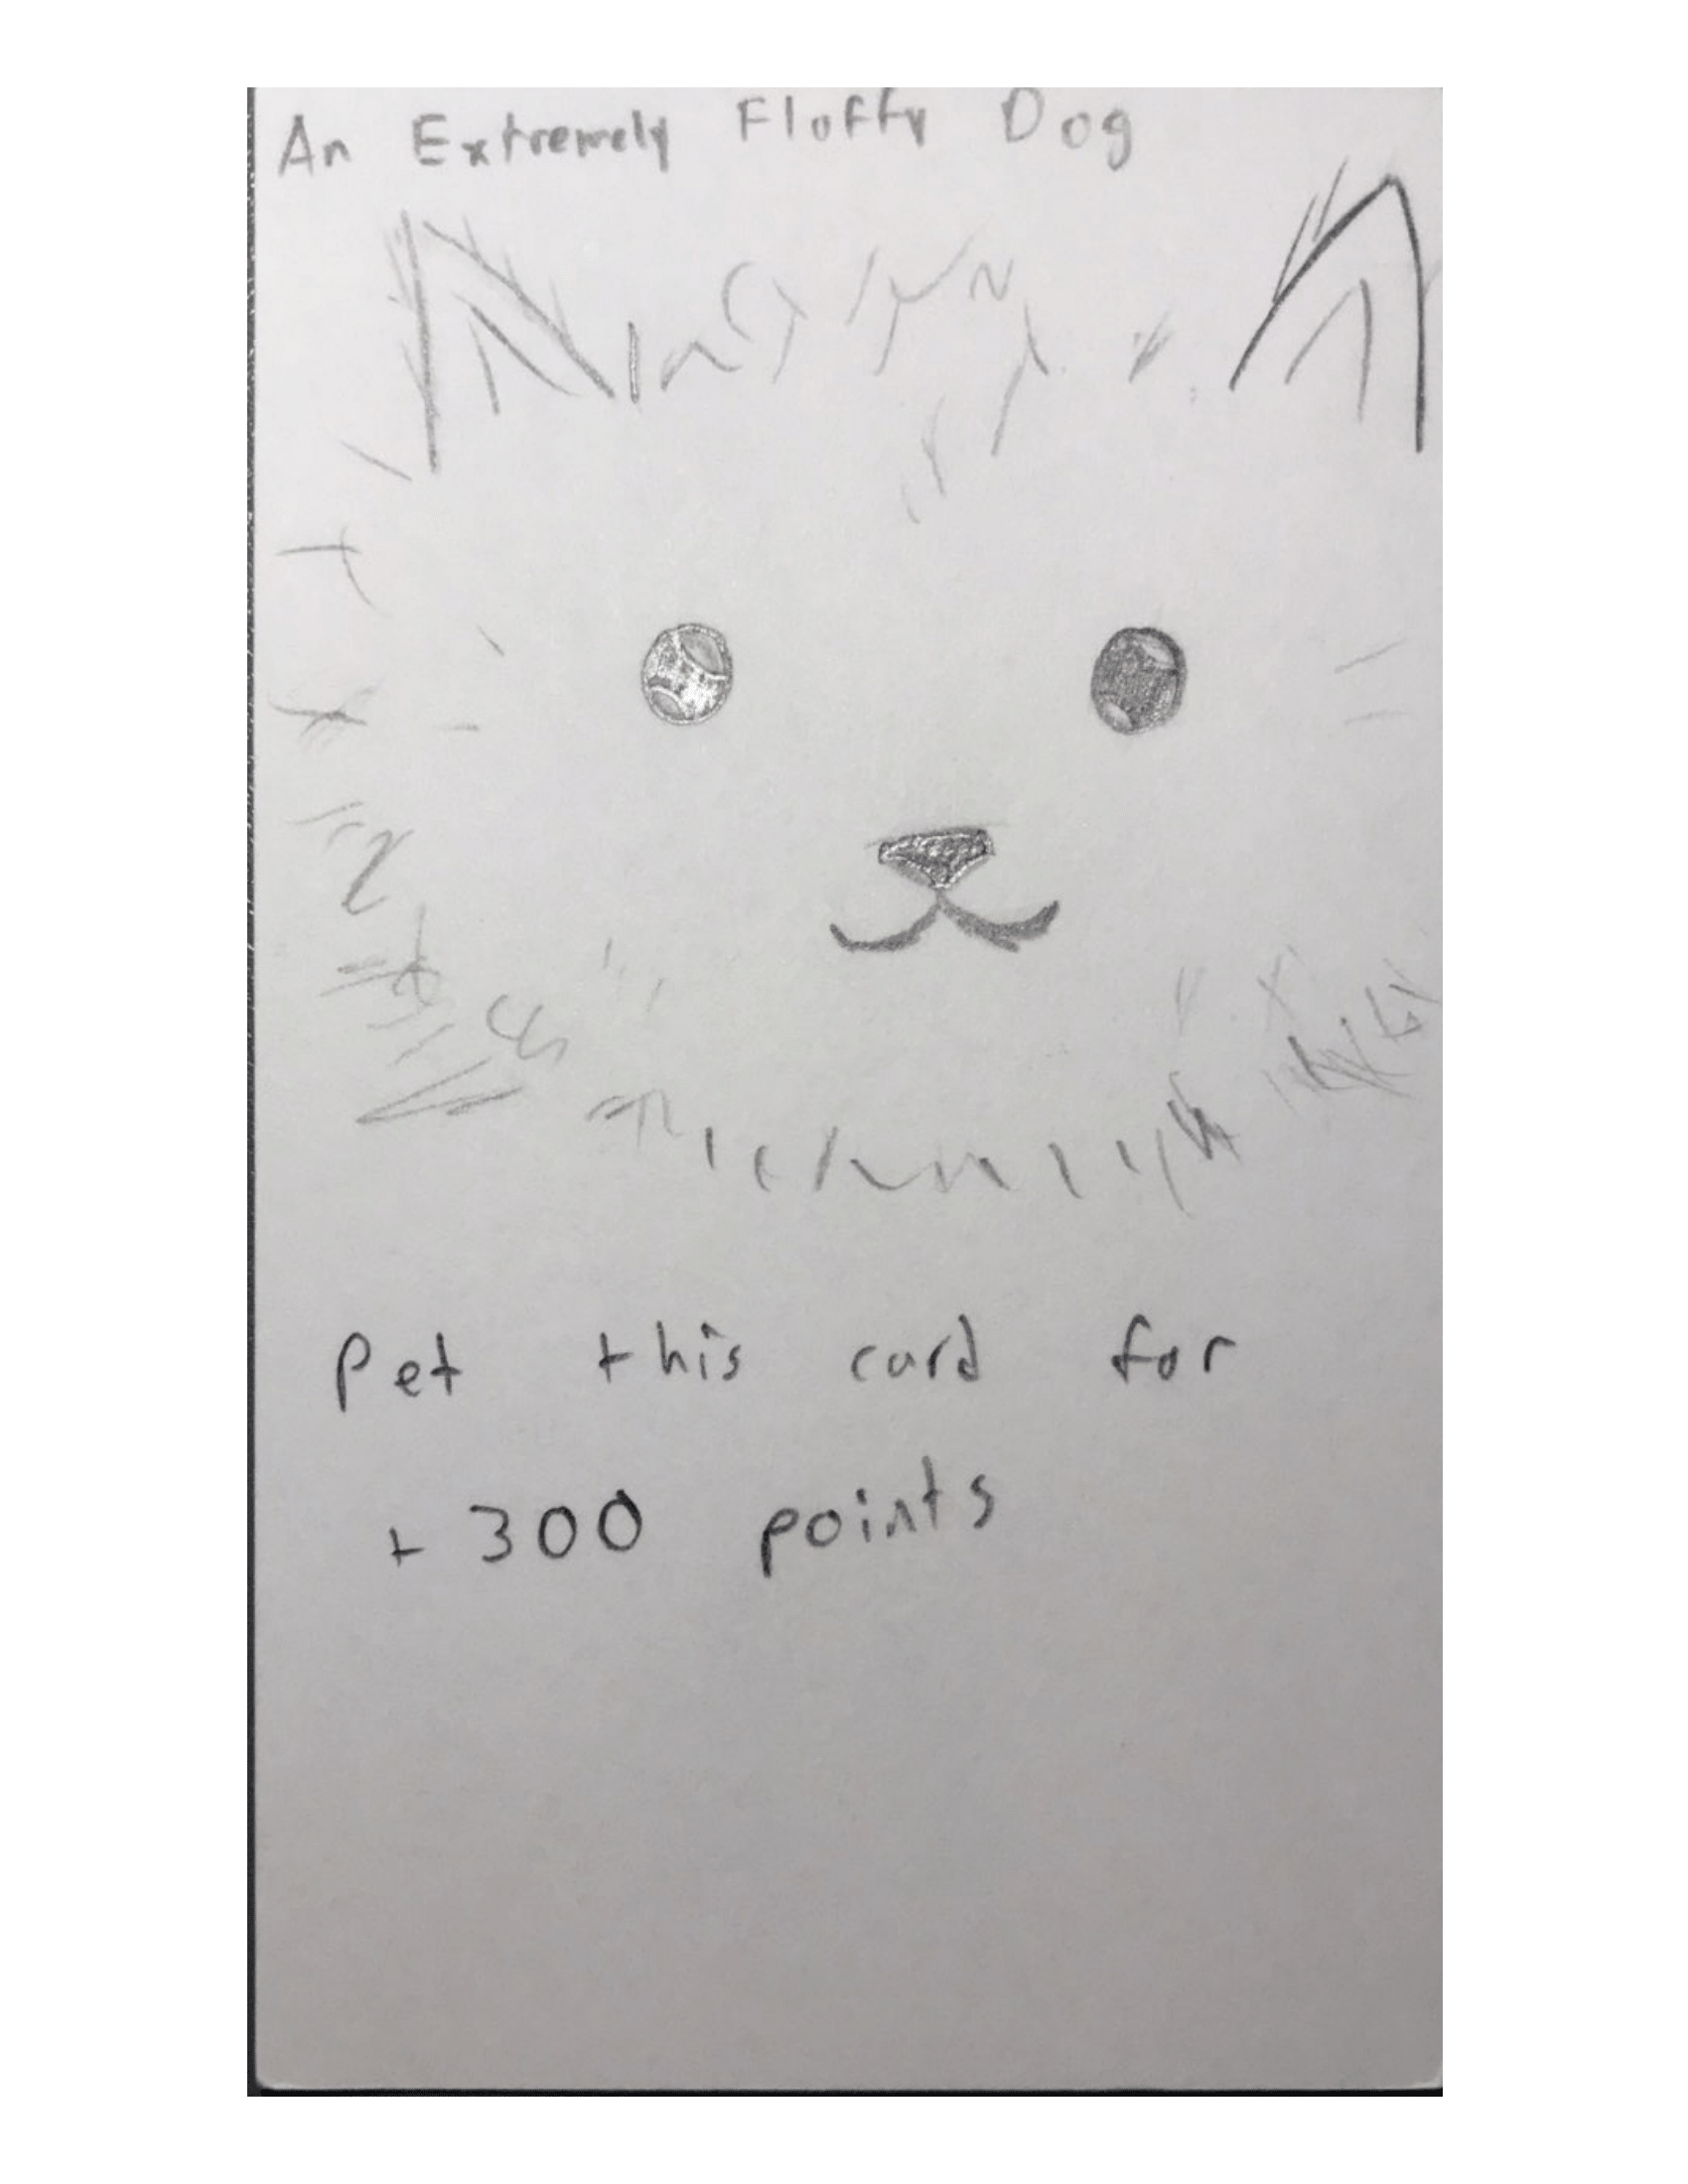 An Extremely Floffy Dog
Pet this card for
+300 points